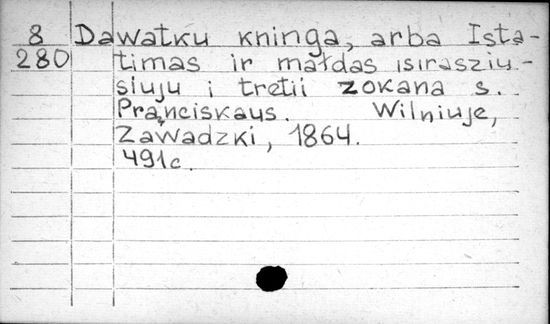 8 Dawatku kninga, arba Įsta-
280 timas ir małdas isirasziu-
siuju i tretii zokana s.
Prąnciskaus. Wilniuje,
Zawadzki, 1864.
491c.